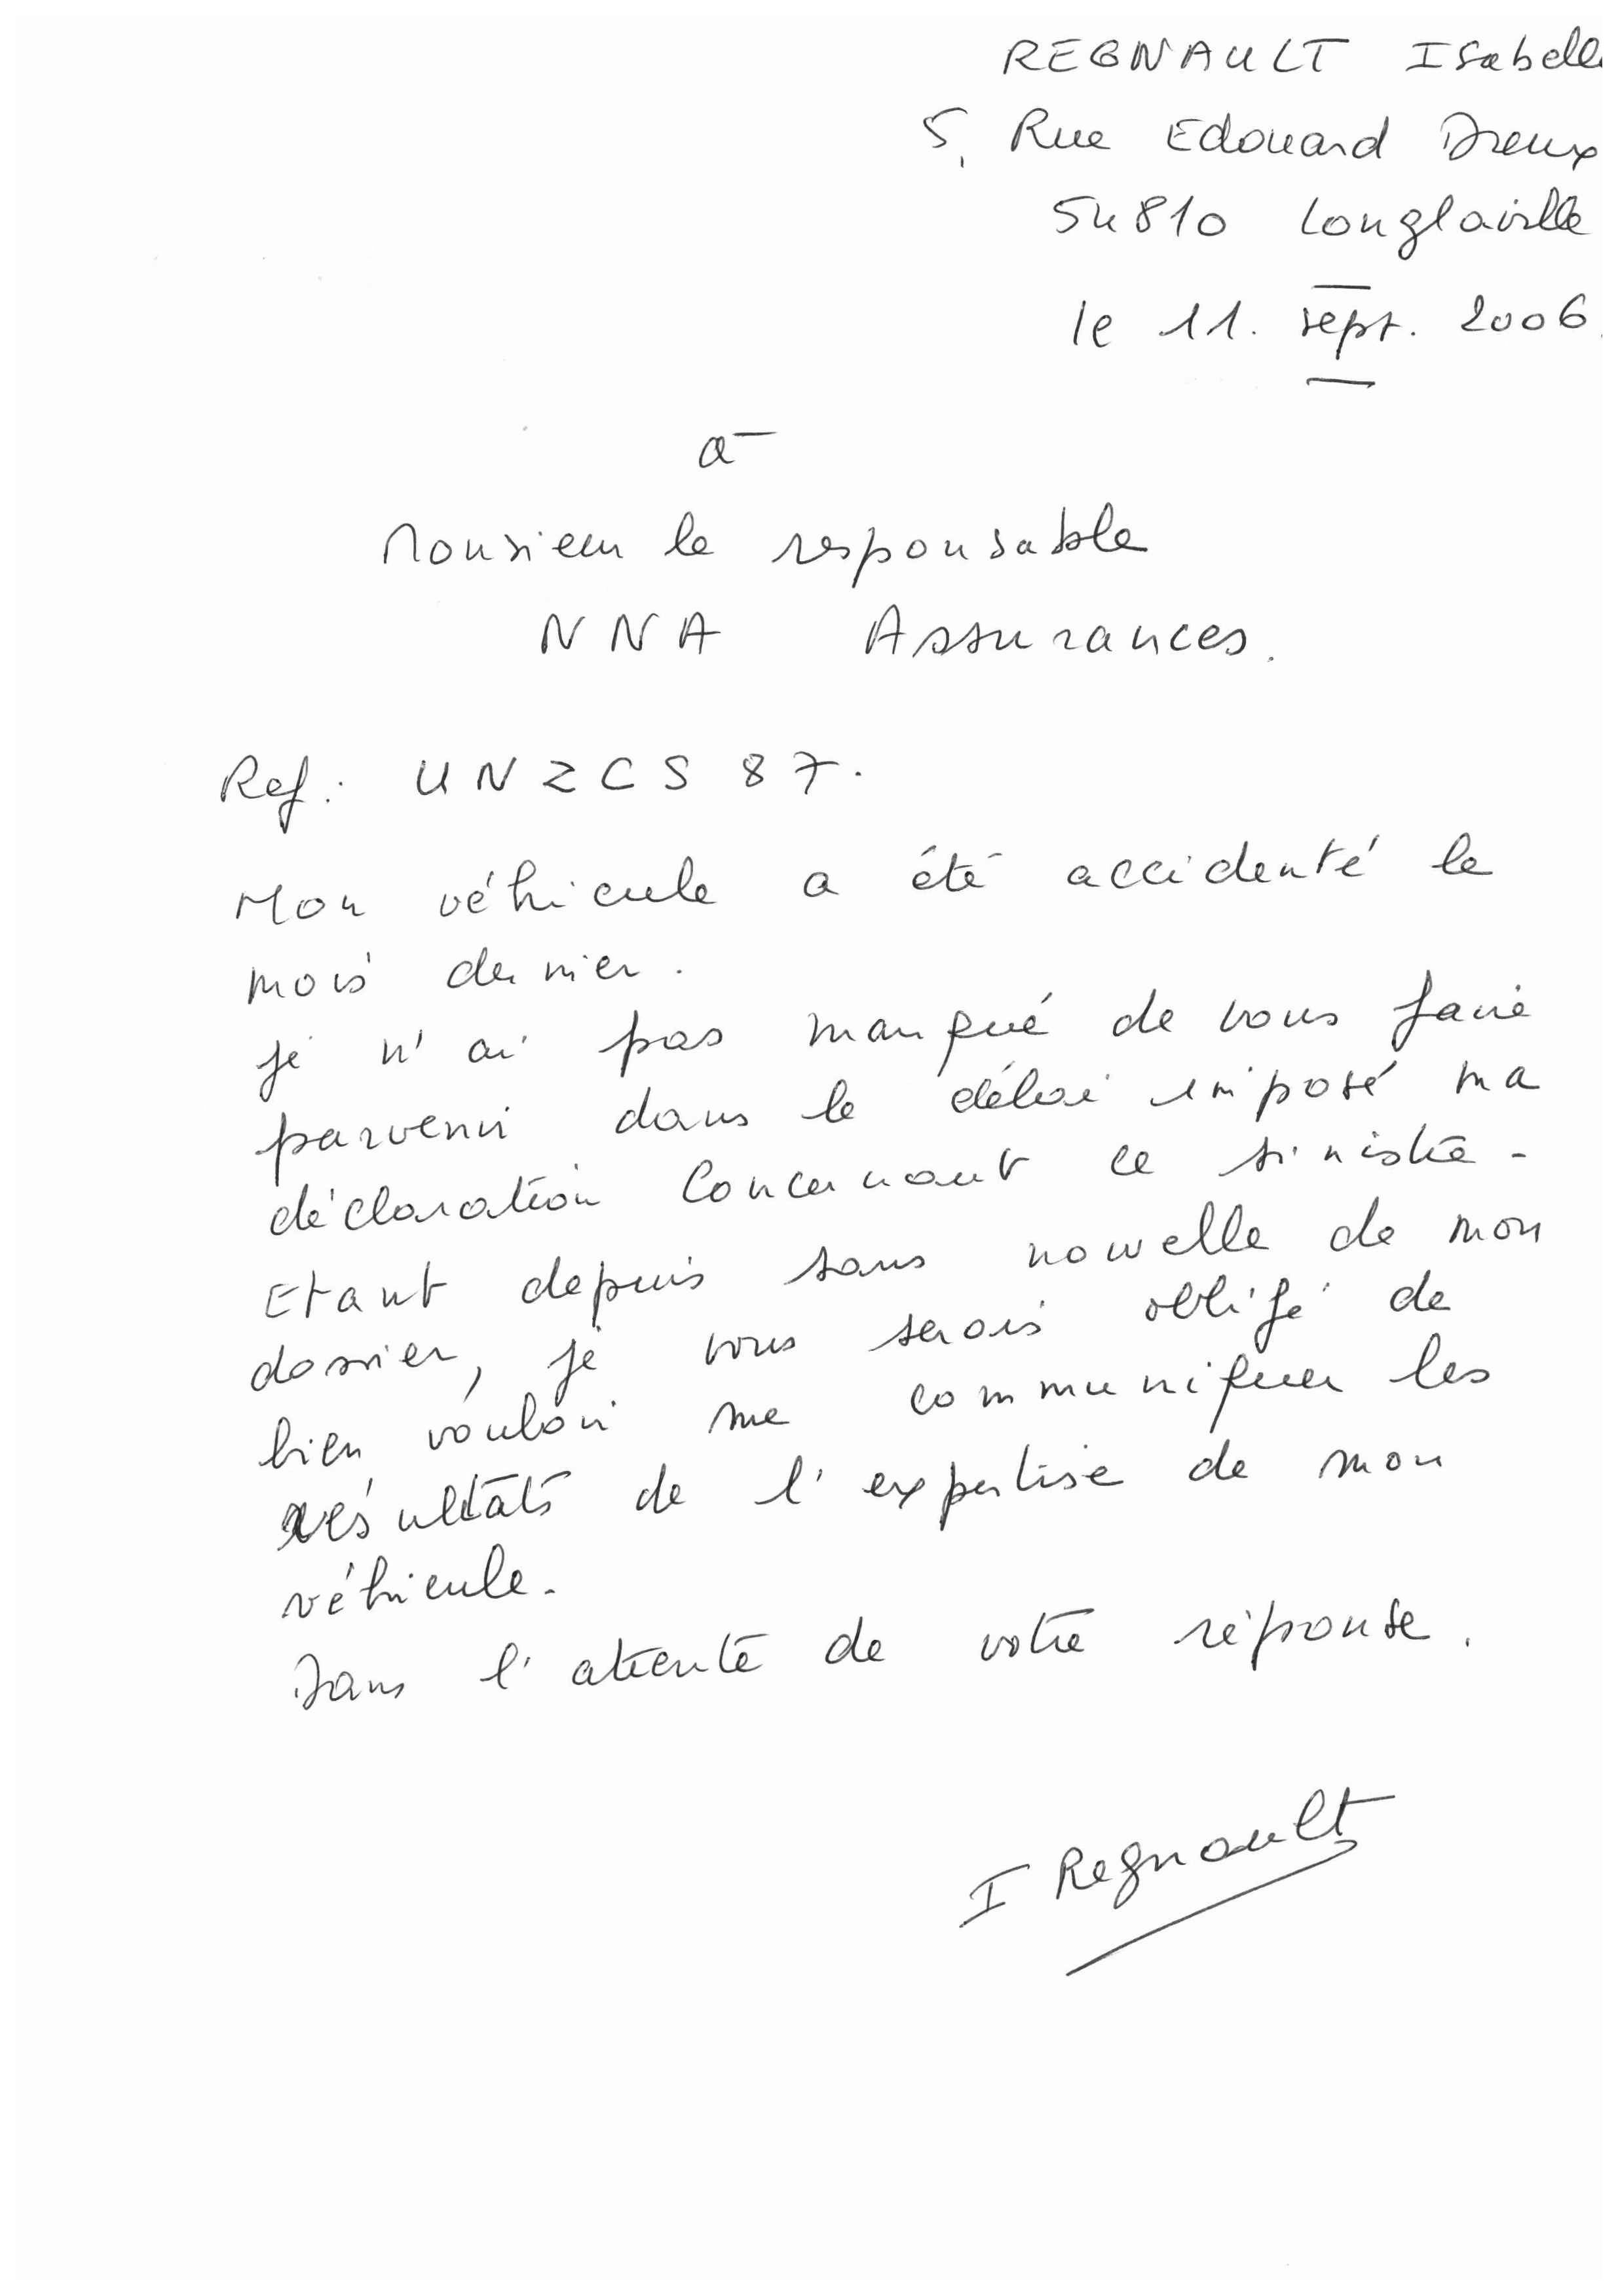 REGNAULT Isabelle
5, Rue Edouard Dreux
54810 Longlaville
le 11. sept. 2006.
à
Monsieur le responsable
NNA Assurances.
Ref: UNZCS 87.
Mon véhicule a été accidenté le
mois dernier.
je n'ai pas manqué de vous faire
parvenir dans le délai imposé ma
déclaration concernant ce sinistre.
Etant depuis sans nouvelle de mon
dossier, je vous serais obligé de
bien vouloir me communiquer les
résultats de l'expertise de mon
véhicule.
Dans l'attente de votre réponse.
I Regnault